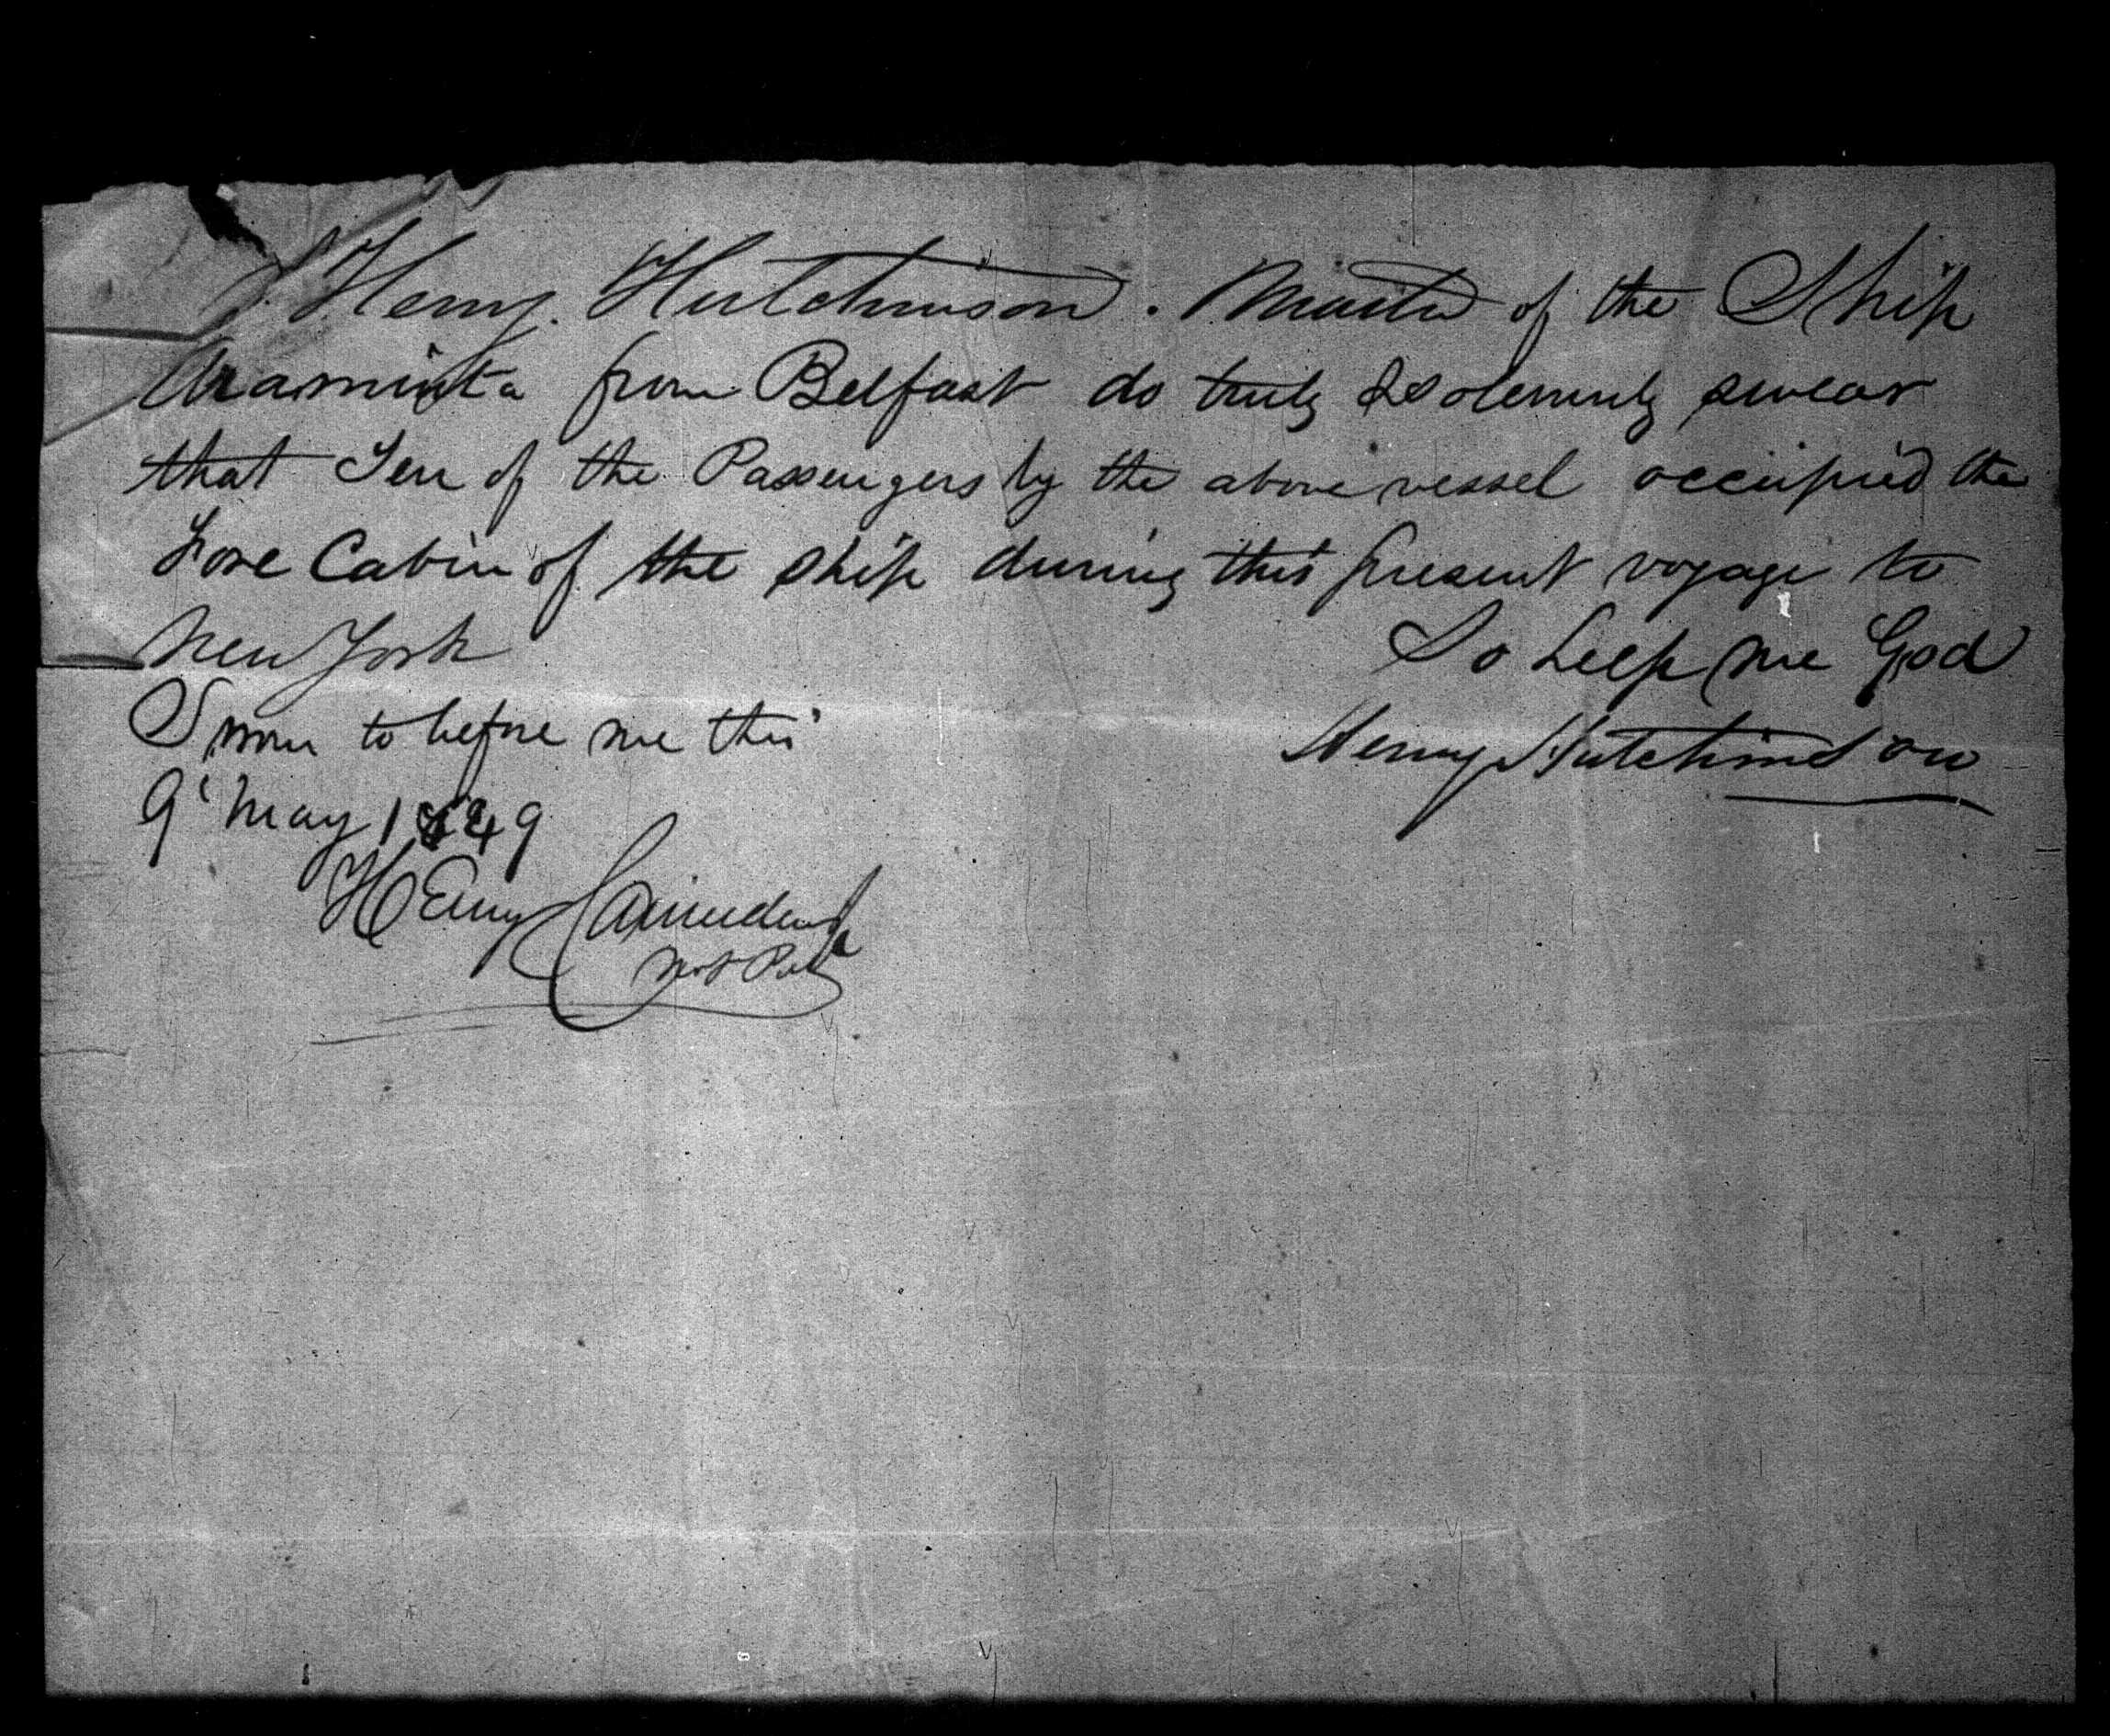 I. Henry. Hutchinson. Master of the Ship
Araminta from Belfast do truly & Solemnly swear
that Ten of the Passengers by the above vessel occupied the
Fore Cabin of the ship during this present voyage to
New York
So help me God
Sworn to before me this
Henry Hutchinson
9' May 1849
Henry
Not Pub